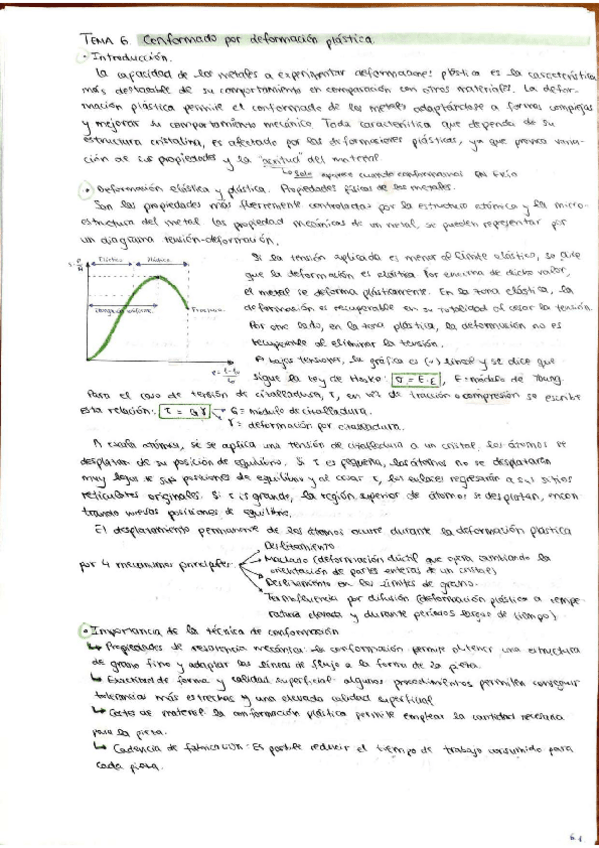 TEMA 6. Conformado por deformación plástica.
• Introducción.
La capacidad de los metales a experimentar deformaciones plástica es la característica
más destacable de su comportamiento en comparación con otros materiales. La defor-
mación plástica permite el conformado de los metales adaptándose a formas complejas
y mejorar su comportamiento mecánico. Toda característica que dependa de su
estructura cristalina, es afectado por las deformaciones plásticas, ya que provoca varia-
ción de sus propiedades y la "acritud" del material.
↳ Solo aparece cuando conformamos en frío
• Deformación elástica y plástica. Propiedades físicas de los metales.
Son las propiedades más fuertemente controladas por la estructura atómica y la micro-
estructura del metal. Las propiedad mecánicas de un metal se pueden representar por
un diagrama tensión-deformación.
Elástica Plástica
Fractura
Si la tensión aplicada es menor al límite elástico, se dice
que la deformación es elástica. Por encima de dicho valor,
el metal se deforma plásticamente. En la zona elástica, la
deformación es recuperable en su totalidad al cesar la tensión.
Por otro lado, en la zona plástica, la deformación no es
recuperable al eliminar la tensión.
A bajas tensiones, la gráfica es (~) lineal y se dice que
sigue la ley de Hooke: σ = E·ε, E = módulo de Young.
Para el caso de tensión de cizalladura, τ, en vez de tracción o compresión se escribe
esta relación: τ = Gγ G = módulo de cizalladura.
γ = deformación por cizalladura.
A escala atómica, si se aplica una tensión de cizalladura a un cristal. Los átomos se
desplazan de su posición de equilibrio. Si τ es pequeña, los átomos no se desplazarán
muy lejos de sus posiciones de equilibrio y al cesar τ, los enlaces regresarán a sus sitios
reticulares originales. Si τ es grande, la región superior de átomos se desplazan, encon-
trando nuevas posiciones de equilibrio.
El desplazamiento permanente de los átomos ocurre durante la deformación plástica
por 4 mecanismos principales:
Deslizamiento
Maclado (deformación dúctil que opera cambiando la
orientación de partes enteras de un cristal)
Deslizamiento en los límites de grano.
Termofluencia por difusión (deformación plástica a tempe-
ratura elevada y durante períodos largos de tiempo)
• Importancia de la técnica de conformación
↳ Propiedades de resistencia mecánica: la conformación permite obtener una estructura
de grano fino y adaptar las líneas de flujo a la forma de la pieza.
↳ Exactitud de forma y calidad superficial: algunos procedimientos permiten conseguir
tolerancias más estrechas y una elevada calidad superficial
↳ Costes de material: la conformación plástica permite emplear la cantidad necesaria
para la pieza.
↳ Cadencia de fabricación: Es posible reducir el tiempo de trabajo consumido para
cada pieza.
6.1